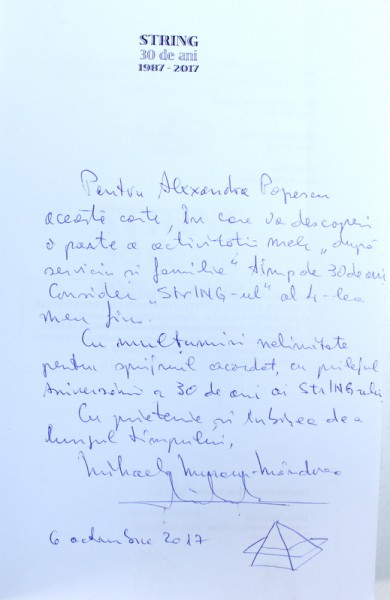 STRING
30 de ani
1987 - 2017
Pentru Alexandra Popescu
această carte, în care va descoperi
o parte a activitatii mele „după
serviciu si familie" timp de 30 de ani
Consider „StrING-ul" al 4-lea
meu fiu.
Cu mulțumiri nelimitate
pentru sprijinul acordat, cu prilejul
aniversării a 30 de ani ai StrING-ului
Cu prietenie și iubirea de a
lungul timpului,
Mihaela
6 octombrie 2017